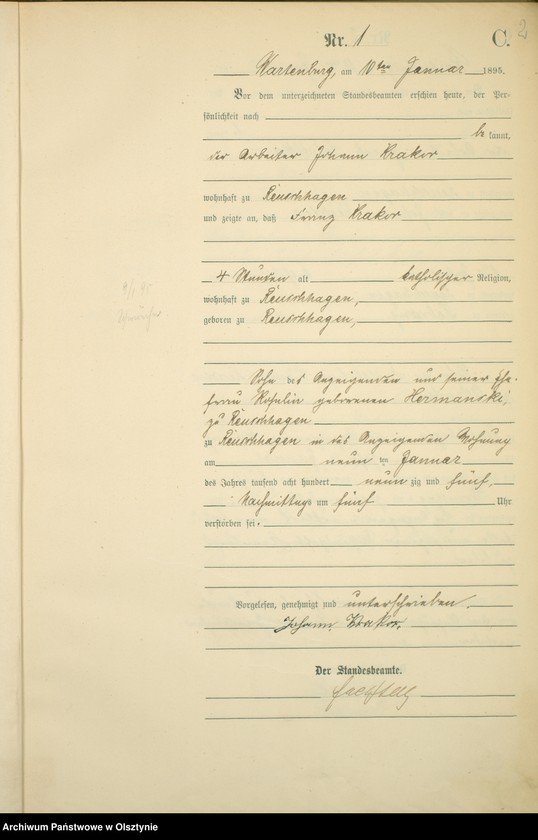 2
Nr. 1 C.
Wartenburg, am 10ten Januar 1895.
Vor dem unterzeichneten Standesbeamten erschien heute, der Per-
sönlichkeit nach
be kannt,
der Arbeiter Johann Krakor
wohnhaft zu Reuschhagen
und zeigte an, daß Franz Krakor
4 Stunden alt katholischer Religion,
wohnhaft zu Reuschhagen,
geboren zu Reuschhagen,
Sohn des Anzeigenden und seiner Ehe-
frau Rosalia geborenen Hermanski,
zu Reuschhagen
zu Reuschhagen in des Anzeigenden Wohnung
am neun ten Januar
des Jahres tausend acht hundert neun zig und fünf,
Nachmittags um fünf Uhr
verstorben sei.
Vorgelesen, genehmigt und unterschrieben.
Johann Krakor.
Der Standesbeamte.
Archiwum Państwowe w Olsztynie